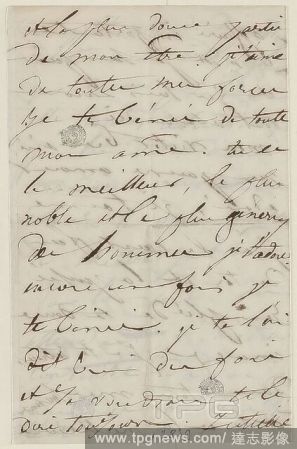 et la plus douce partie
de mon être. j'aime
de toutes mes forces
je te bénis de toute
mon âme. tu es
le meilleur, le plus
noble et le plus généreux
des hommes je t'adore
encore une fois je
te bénis. je te l'ai
dit bien des fois
et je voudrais te le
dire toujours. Juliette
TPG
www.tpgnews.com / 達志影像